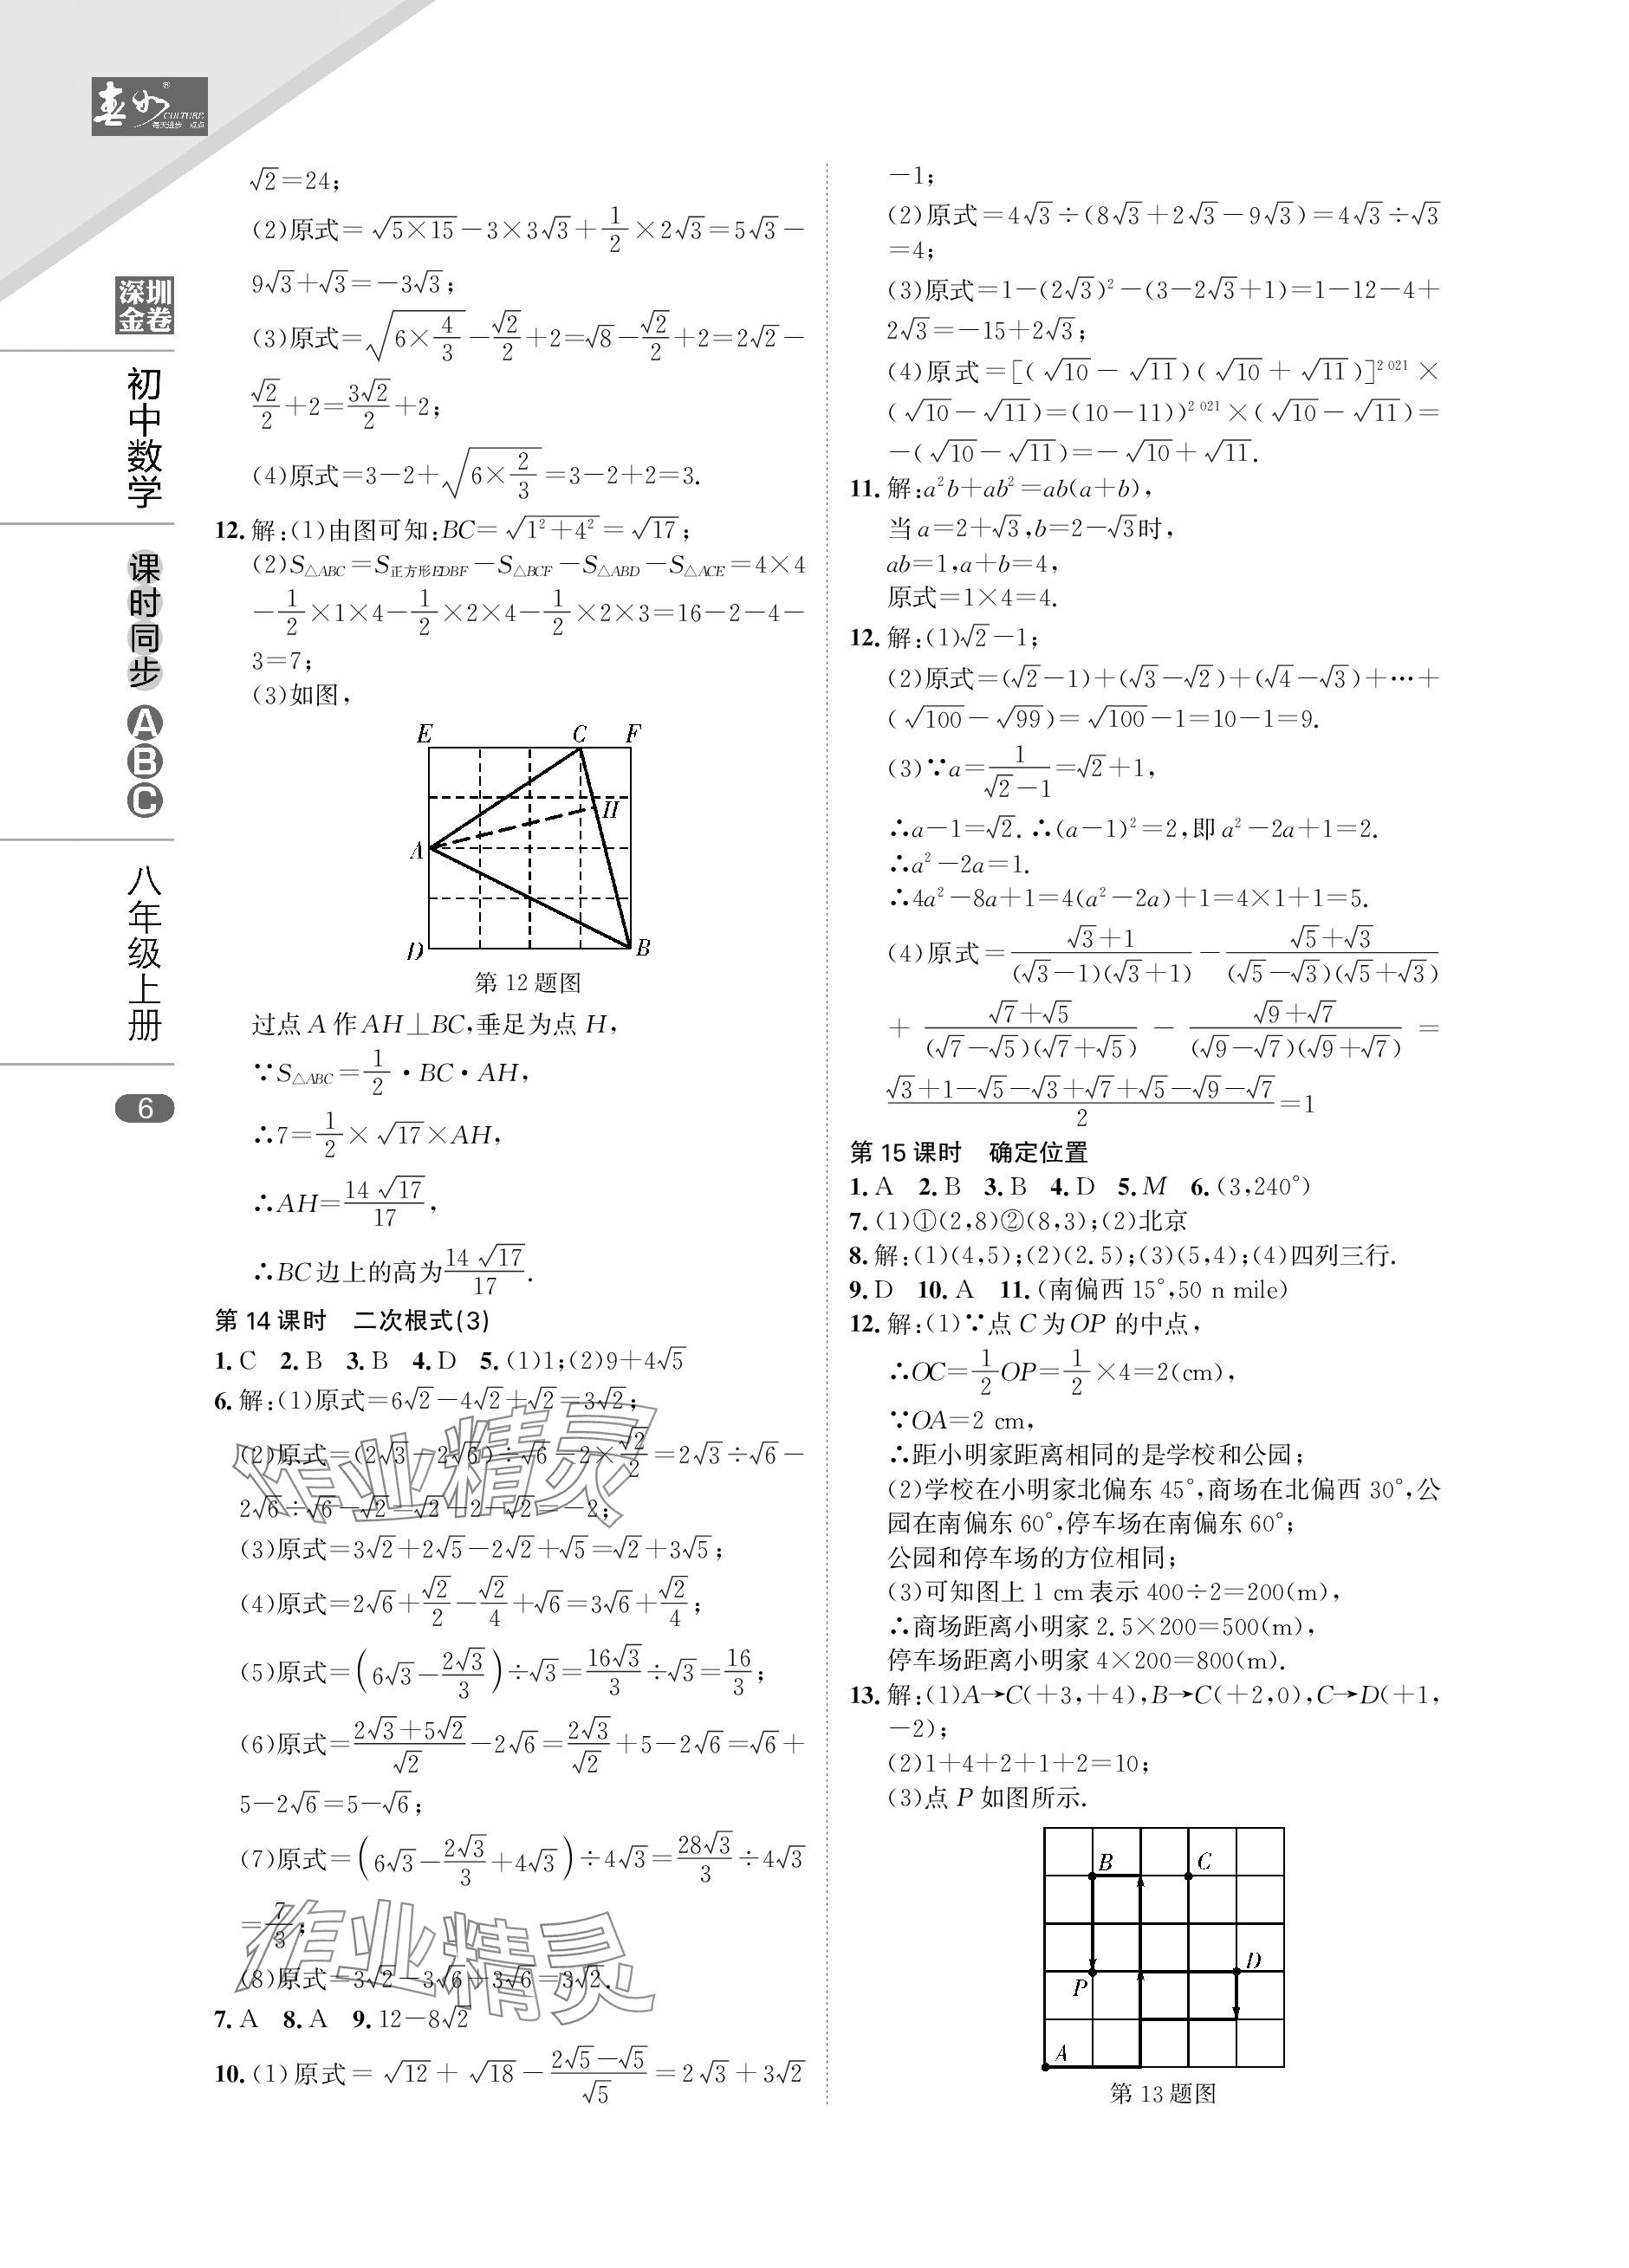 春如®
CULTURE
每天进步一点点
深圳
金卷
初中数学
课时同步
A
B
C
八年级上册
6
√2=24;
(2)原式=√(5×15)-3×3√3+1/2×2√3=5√3-
9√3+√3=-3√3;
(3)原式=√(6×4/3)-√2/2+2=√8-√2/2+2=2√2-
√2/2+2=3√2/2+2;
(4)原式=3-2+√(6×2/3)=3-2+2=3.
12.解:(1)由图可知:BC=√(1²+4²)=√17;
(2)S△ABC=S正方形EDBF-S△BCF-S△ABD-S△ACE=4×4
-1/2×1×4-1/2×2×4-1/2×2×3=16-2-4-
3=7;
(3)如图,
E C F
H
A
D B
第12题图
过点A作AH⊥BC,垂足为点H,
∵S△ABC=1/2·BC·AH,
∴7=1/2×√17×AH,
∴AH=14√17/17,
∴BC边上的高为14√17/17.
第14课时 二次根式(3)
1.C 2.B 3.B 4.D 5.(1)1;(2)9+4√5
6.解:(1)原式=6√2-4√2+√2=3√2;
(2)原式=(2√3-2√6)÷√6-2×√2/2=2√3÷√6-
2√6÷√6-√2=√2-2-√2=-2;
(3)原式=3√2+2√5-2√2+√5=√2+3√5;
(4)原式=2√6+√2/2-√2/4+√6=3√6+√2/4;
(5)原式=(6√3-2√3/3)÷√3=16√3/3÷√3=16/3;
(6)原式=(2√3+5√2)/√2-2√6=2√3/√2+5-2√6=√6+
5-2√6=5-√6;
(7)原式=(6√3-2√3/3+4√3)÷4√3=28√3/3÷4√3
=7/3;
(8)原式=3√2-3√6+3√6=3√2.
作业精灵
作业精灵
7.A 8.A 9.12-8√2
10.(1)原式=√12+√18-(2√5-√5)/√5=2√3+3√2
-1;
(2)原式=4√3÷(8√3+2√3-9√3)=4√3÷√3
=4;
(3)原式=1-(2√3)²-(3-2√3+1)=1-12-4+
2√3=-15+2√3;
(4)原式=[(√10-√11)(√10+√11)]²⁰²¹×
(√10-√11)=(10-11))²⁰²¹×(√10-√11)=
-(√10-√11)=-√10+√11.
11.解:a²b+ab²=ab(a+b),
当a=2+√3,b=2-√3时,
ab=1,a+b=4,
原式=1×4=4.
12.解:(1)√2-1;
(2)原式=(√2-1)+(√3-√2)+(√4-√3)+…+
(√100-√99)=√100-1=10-1=9.
(3)∵a=1/(√2-1)=√2+1,
∴a-1=√2.∴(a-1)²=2,即a²-2a+1=2.
∴a²-2a=1.
∴4a²-8a+1=4(a²-2a)+1=4×1+1=5.
(4)原式=(√3+1)/((√3-1)(√3+1))-(√5+√3)/((√5-√3)(√5+√3))
+(√7+√5)/((√7-√5)(√7+√5))-(√9+√7)/((√9-√7)(√9+√7))=
(√3+1-√5-√3+√7+√5-√9-√7)/2=1
第15课时 确定位置
1.A 2.B 3.B 4.D 5.M 6.(3,240°)
7.(1)①(2,8)②(8,3);(2)北京
8.解:(1)(4,5);(2)(2.5);(3)(5,4);(4)四列三行.
9.D 10.A 11.(南偏西15°,50 n mile)
12.解:(1)∵点C为OP的中点,
∴OC=1/2OP=1/2×4=2(cm),
∵OA=2 cm,
∴距小明家距离相同的是学校和公园;
(2)学校在小明家北偏东45°,商场在北偏西30°,公
园在南偏东60°,停车场在南偏东60°;
公园和停车场的方位相同;
(3)可知图上1 cm表示400÷2=200(m),
∴商场距离小明家2.5×200=500(m),
停车场距离小明家4×200=800(m).
13.解:(1)A→C(+3,+4),B→C(+2,0),C→D(+1,
-2);
(2)1+4+2+1+2=10;
(3)点P如图所示.
B C
D
P
A
第13题图